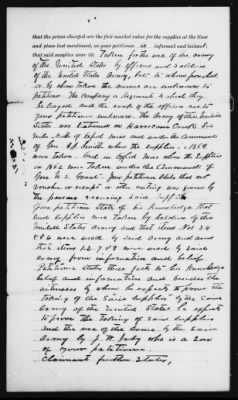 that the prices charged are the fair market value for the supplies at the time
and place last mentioned, as your petitioner is informed and believes;
that said supplies were Taken for the use of the army
of the United States by officers and soldiers
of the United States Army, but to whom furnished
or by whom taken the names are unknown to
petitioner. The company or Regiment to which they
belonged and the rank of the officers are to
your petitioner unknown. The Army of the United
States was stationed at
of Gen. A. J. Smith when the supplies in 1864
were taken. And in of said when the supplies
in 1862 were taken under the Command of
Gen. U. S. Grant. Your petitioner states that no
voucher or receipt or other writing was given by
the persons receiving said supplies
your petitioner states of his knowledge that
said supplies were taken by soldiers of the
United States Army and that items Nos 3 4
5 & 6 were used by said army and
that items 1 2 7 8 & 9 were used by said
army from information and belief
Petitioner states these facts to his knowledge
belief and information and besides the
witnesses by whom he expects to prove the
taking of the said supplies by the said
Army of the United States he expects
to prove the taking of said supplies
and the use of the same by the said
army by J. W. who is a son
of your petitioner.
Claimant further states,